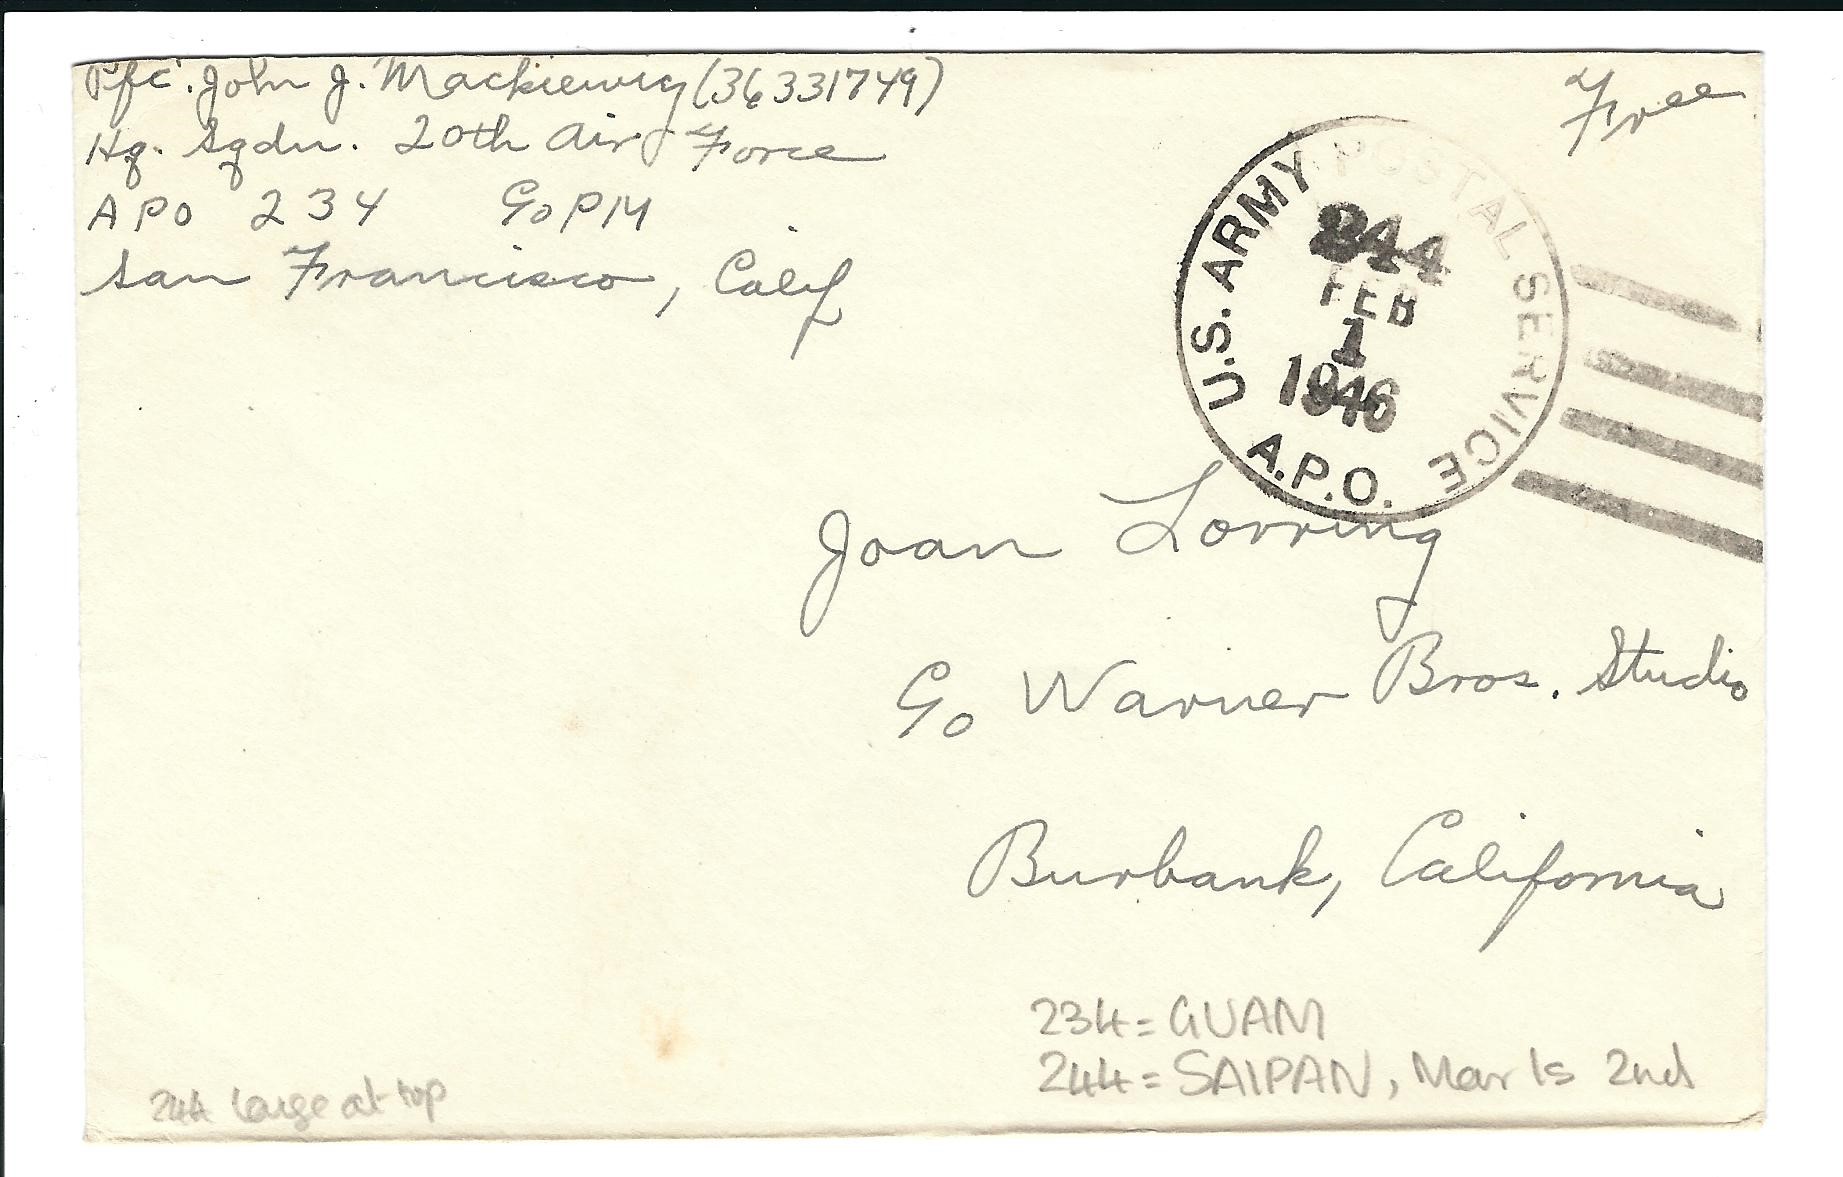 Pfc. John J. Mackiewicz (36331749)
Hq. Sqdn. 20th Air Force
APO 234 c/o PM
San Francisco, Calif
Free
U.S. ARMY POSTAL SERVICE
244
FEB
1
1946
A.P.O.
Joan Lorring
c/o Warner Bros. Studio
Burbank, California
234 = GUAM
244 = SAIPAN, Mar Is 2nd
244 large at top